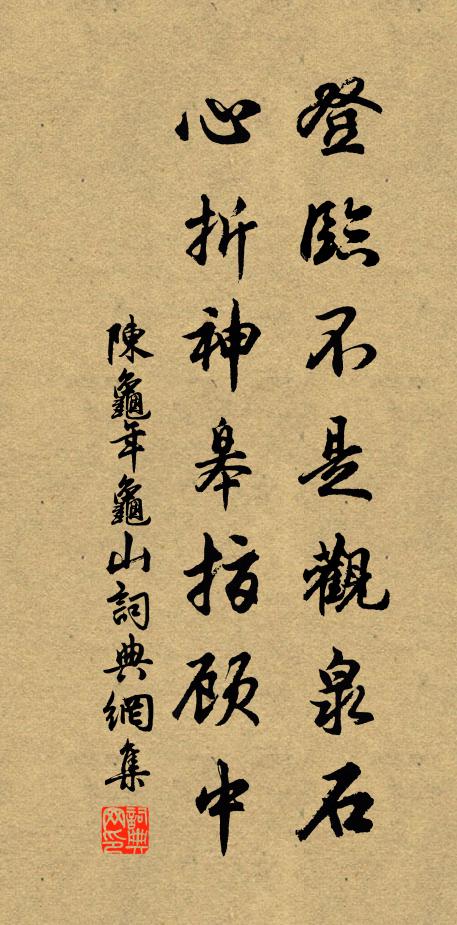 登臨不是觀泉石
心折神皋指顾中
陳龜年龜山詞典網集
詞典網印